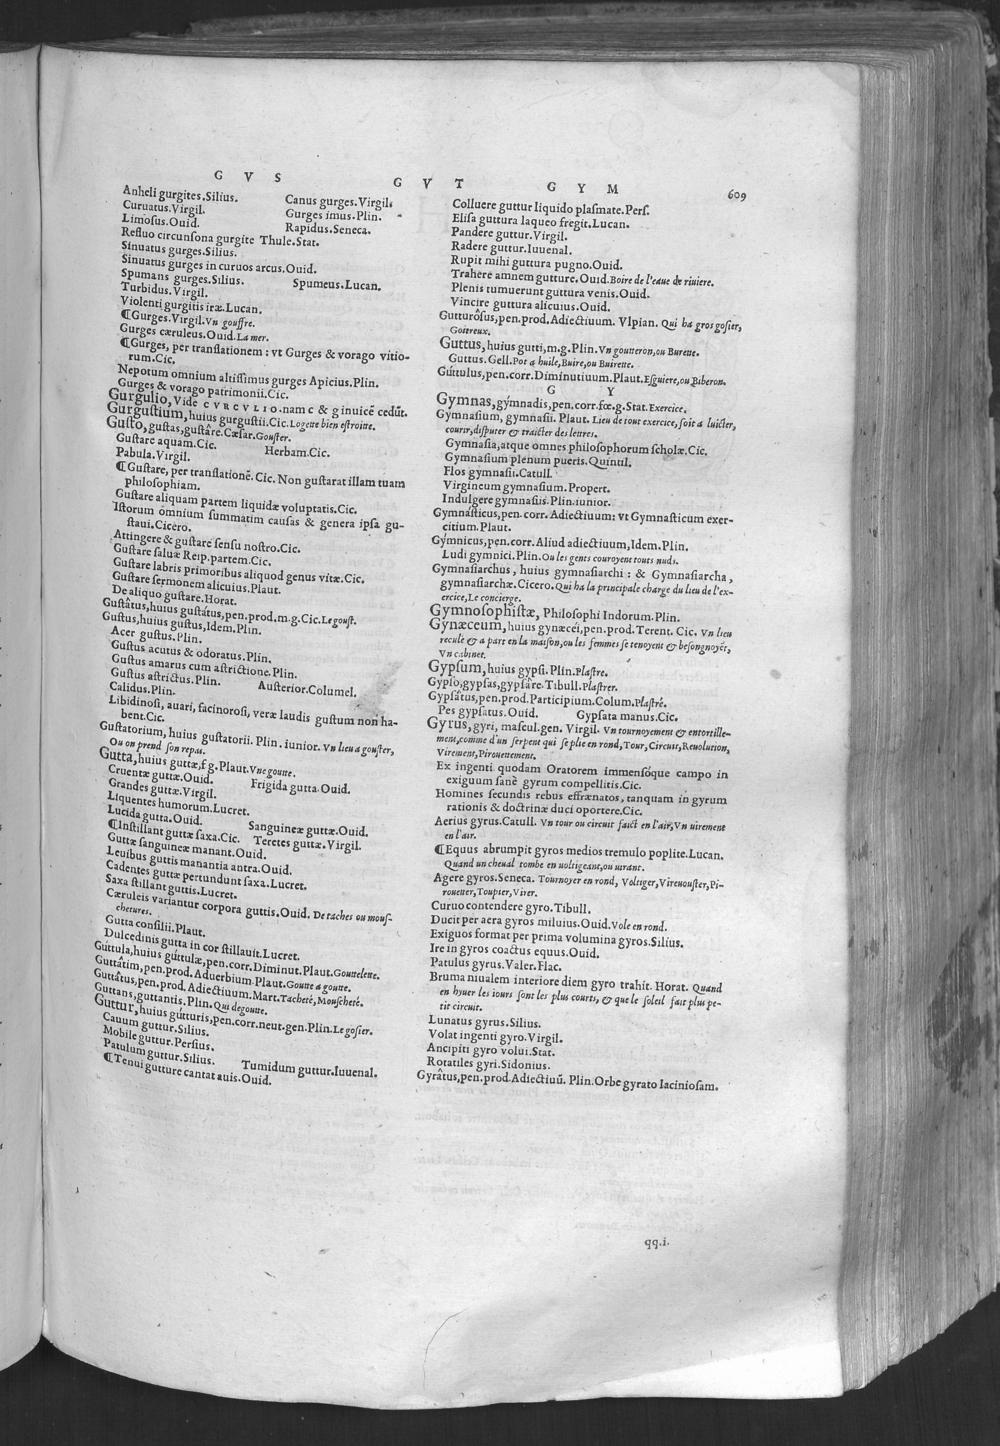 G V S
G V T
G Y M
609
Anheli gurgites.Silius. Canus gurges.Virgil.
Curuatus.Virgil. Gurges imus.Plin.
Limosus.Ouid. Rapidus.Seneca.
Refluo circunsona gurgite Thule.Stat.
Sinuatus gurges.Silius.
Sinuatus gurges in curuos arcus.Ouid.
Spumans gurges.Silius. Spumeus.Lucan.
Turbidus.Virgil.
Violenti gurgitis iræ.Lucan.
¶Gurges.Virgil.Vn gouffre.
Gurges cæruleus.Ouid.La mer.
¶Gurges, per translationem : vt Gurges & vorago vitio-
rum.Cic.
Nepotum omnium altissimus gurges Apicius.Plin.
Gurges & vorago patrimonii.Cic.
Gurgulio, Vide CVRCVLIO.nam c & g inuicē cedūt.
Gurgustium, huius gurgustii.Cic.Logette bien estroitte.
Gusto, gustas, gustâre.Cæsar.Gouster.
Gustare aquam.Cic. Herbam.Cic.
Pabula.Virgil.
¶Gustare, per translationē.Cic. Non gustarat illam tuam
philosophiam.
Gustare aliquam partem liquidæ voluptatis.Cic.
Istorum omnium summatim causas & genera ipsa gu-
staui.Cicero.
Attingere & gustare sensu nostro.Cic.
Gustare saluæ Reip.partem.Cic.
Gustare labris primoribus aliquod genus vitæ.Cic.
Gustare sermonem alicuius.Plaut.
De aliquo gustare.Horat.
Gustâtus, huius gustâtus, pen.prod.m.g.Cic.Le goust.
Gustus, huius gustus, Idem.Plin.
Acer gustus.Plin.
Gustus acutus & odoratus.Plin.
Gustus amarus cum astrictione.Plin.
Gustus astrictus.Plin. Austerior.Columel.
Calidus.Plin.
Libidinosi, auari, facinorosi, veræ laudis gustum non ha-
bent.Cic.
Gustatorium, huius gustatorii. Plin. iunior. Vn lieu a gouster,
Ou on prend son repas.
Gutta, huius guttæ, f.g.Plaut.Vne goutte.
Cruentæ guttæ.Ouid. Frigida gutta.Ouid.
Grandes guttæ.Virgil.
Liquentes humorum.Lucret.
Lucida gutta.Ouid. Sanguineæ guttæ.Ouid.
¶Instillant guttæ saxa.Cic. Teretes guttæ.Virgil.
Guttæ sanguineæ manant.Ouid.
Leuibus guttis manantia antra.Ouid.
Cadentes guttæ pertundunt saxa.Lucret.
Saxa stillant guttis.Lucret.
Cæruleis variantur corpora guttis.Ouid. De taches ou mous-
chetures.
Gutta consilii.Plaut.
Dulcedinis gutta in cor stillauit.Lucret.
Gúttula, huius gúttulæ, pen.corr.Diminut.Plaut.Gouttelette.
Guttâtim, pen.prod. Aduerbium.Plaut.Goutte a goutte.
Guttâtus, pen.prod. Adiectiuum.Mart.Tacheté, Mouscheté.
Guttans, guttantis.Plin.Qui degoutte.
Guttur, huius gútturis, pen.corr.neut.gen.Plin.Le gosier.
Cauum guttur.Silius.
Mobile guttur.Persius.
Patulum guttur.Silius. Tumidum guttur.Iuuenal.
¶Tenui gutture cantat auis.Ouid.
Colluere guttur liquido plasmate.Pers.
Elisa guttura laqueo fregit.Lucan.
Pandere guttur.Virgil.
Radere guttur.Iuuenal.
Rupit mihi guttura pugno.Ouid.
Trahere amnem gutture.Ouid.Boire de l'eaue de riuiere.
Plenis tumuerunt guttura venis.Ouid.
Vincire guttura alicuius.Ouid.
Gutturôsus, pen.prod.Adiectiuum. Vlpian. Qui ha gros gosier,
Goitreux.
Guttus, huius gutti, m.g.Plin.Vn goutteron, ou Burette.
Guttus.Gell.Pot a huile, Buire, ou Buirette.
Gúttulus, pen.corr.Diminutiuum.Plaut.Esguiere, ou Biberon.
G Y
Gymnas, gýmnadis, pen.corr.fœ.g.Stat.Exercice.
Gymnasium, gymnasii. Plaut. Lieu de tout exercice, soit a luicter,
courir, disputer & traicter des lettres.
Gymnasia, atque omnes philosophorum scholæ.Cic.
Gymnasium plenum pueris.Quintil.
Flos gymnasii.Catull.
Virgineum gymnasium.Propert.
Indulgere gymnasiis.Plin.iunior.
Gymnásticus, pen.corr. Adiectiuum: vt Gymnasticum exer-
citium.Plaut.
Gýmnicus, pen.corr. Aliud adiectiuum, Idem.Plin.
Ludi gymnici.Plin.Ou les gents couroyent touts nuds.
Gymnasiarchus, huius gymnasiarchi : & Gymnasiarcha,
gymnasiarchæ.Cicero.Qui ha la principale charge du lieu de l'ex-
ercice, Le concierge.
Gymnosophistæ, Philosophi Indorum.Plin.
Gynæceum, huius gynæcéi, pen.prod. Terent. Cic. Vn lieu
recule & a part en la maison, ou les femmes se tenoyent & besongnoyēt,
Vn cabinet.
Gypsum, huius gypsi.Plin.Plastre.
Gypso, gypsas, gypsâre.Tibull.Plastrer.
Gypsâtus, pen.prod.Participium.Colum.Plastré.
Pes gypsatus.Ouid. Gypsata manus.Cic.
Gyrus, gyri, mascul.gen. Virgil. Vn tournoyement & entortille-
ment, comme d'un serpent qui se plie en rond, Tour, Circuit, Reuolution,
Virement, Pirouettement.
Ex ingenti quodam Oratorem immensóque campo in
exiguum sanè gyrum compellitis.Cic.
Homines secundis rebus effrænatos, tanquam in gyrum
rationis & doctrinæ duci oportere.Cic.
Aerius gyrus.Catull. Vn tour ou circuit faict en l'air, Vn uirement
en l'air.
¶Equus abrumpit gyros medios tremulo poplite.Lucan.
Quand un cheual tombe en uoltigeant, ou uirant.
Agere gyros.Seneca. Tournoyer en rond, Voltiger, Vireuouster, Pi-
rouetter, Toupier, Virer.
Curuo contendere gyro.Tibull.
Ducit per aera gyros miluius.Ouid.Vole en rond.
Exiguos format per prima volumina gyros.Silius.
Ire in gyros coactus equus.Ouid.
Patulus gyrus.Valer.Flac.
Bruma niualem interiore diem gyro trahit. Horat. Quand
en hyuer les iours sont les plus courts, & que le soleil fait plus pe-
tit circuit.
Lunatus gyrus.Silius.
Volat ingenti gyro.Virgil.
Ancipiti gyro volui.Stat.
Rotatiles gyri.Sidonius.
Gyrâtus, pen.prod.Adiectiuū. Plin.Orbe gyrato laciniosam.
qq.i.